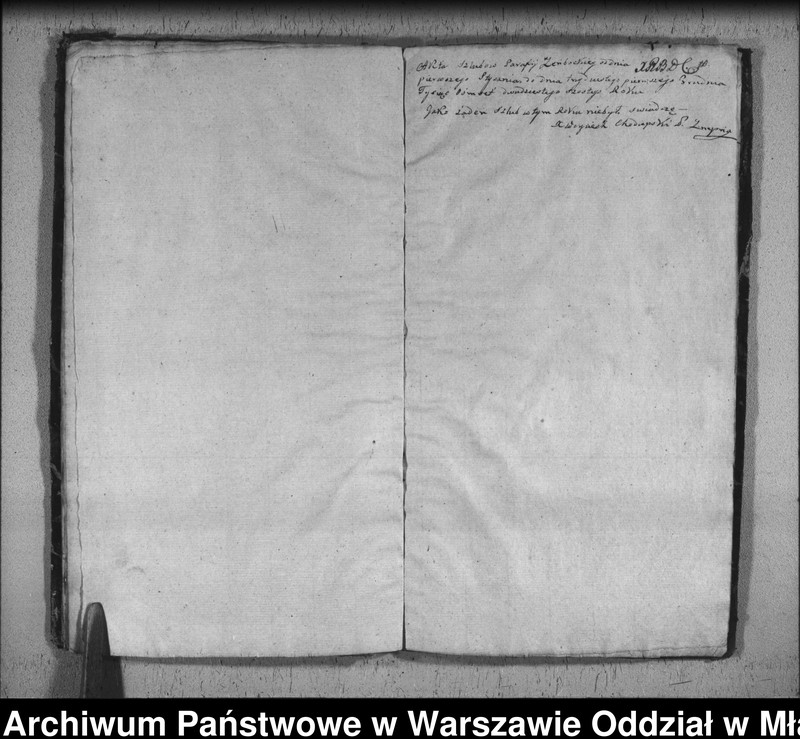 Akta Szlubów Parafij od dnia
pierwszego Stycznia do dnia pierwszego Grudnia
Tysiąc Ośmset dwudziestego Szostego Roku
Jako żaden Szlub w tym Roku niebył. swiadczę —
X Woyciech
Archiwum Państwowe w Warszawie Oddział w